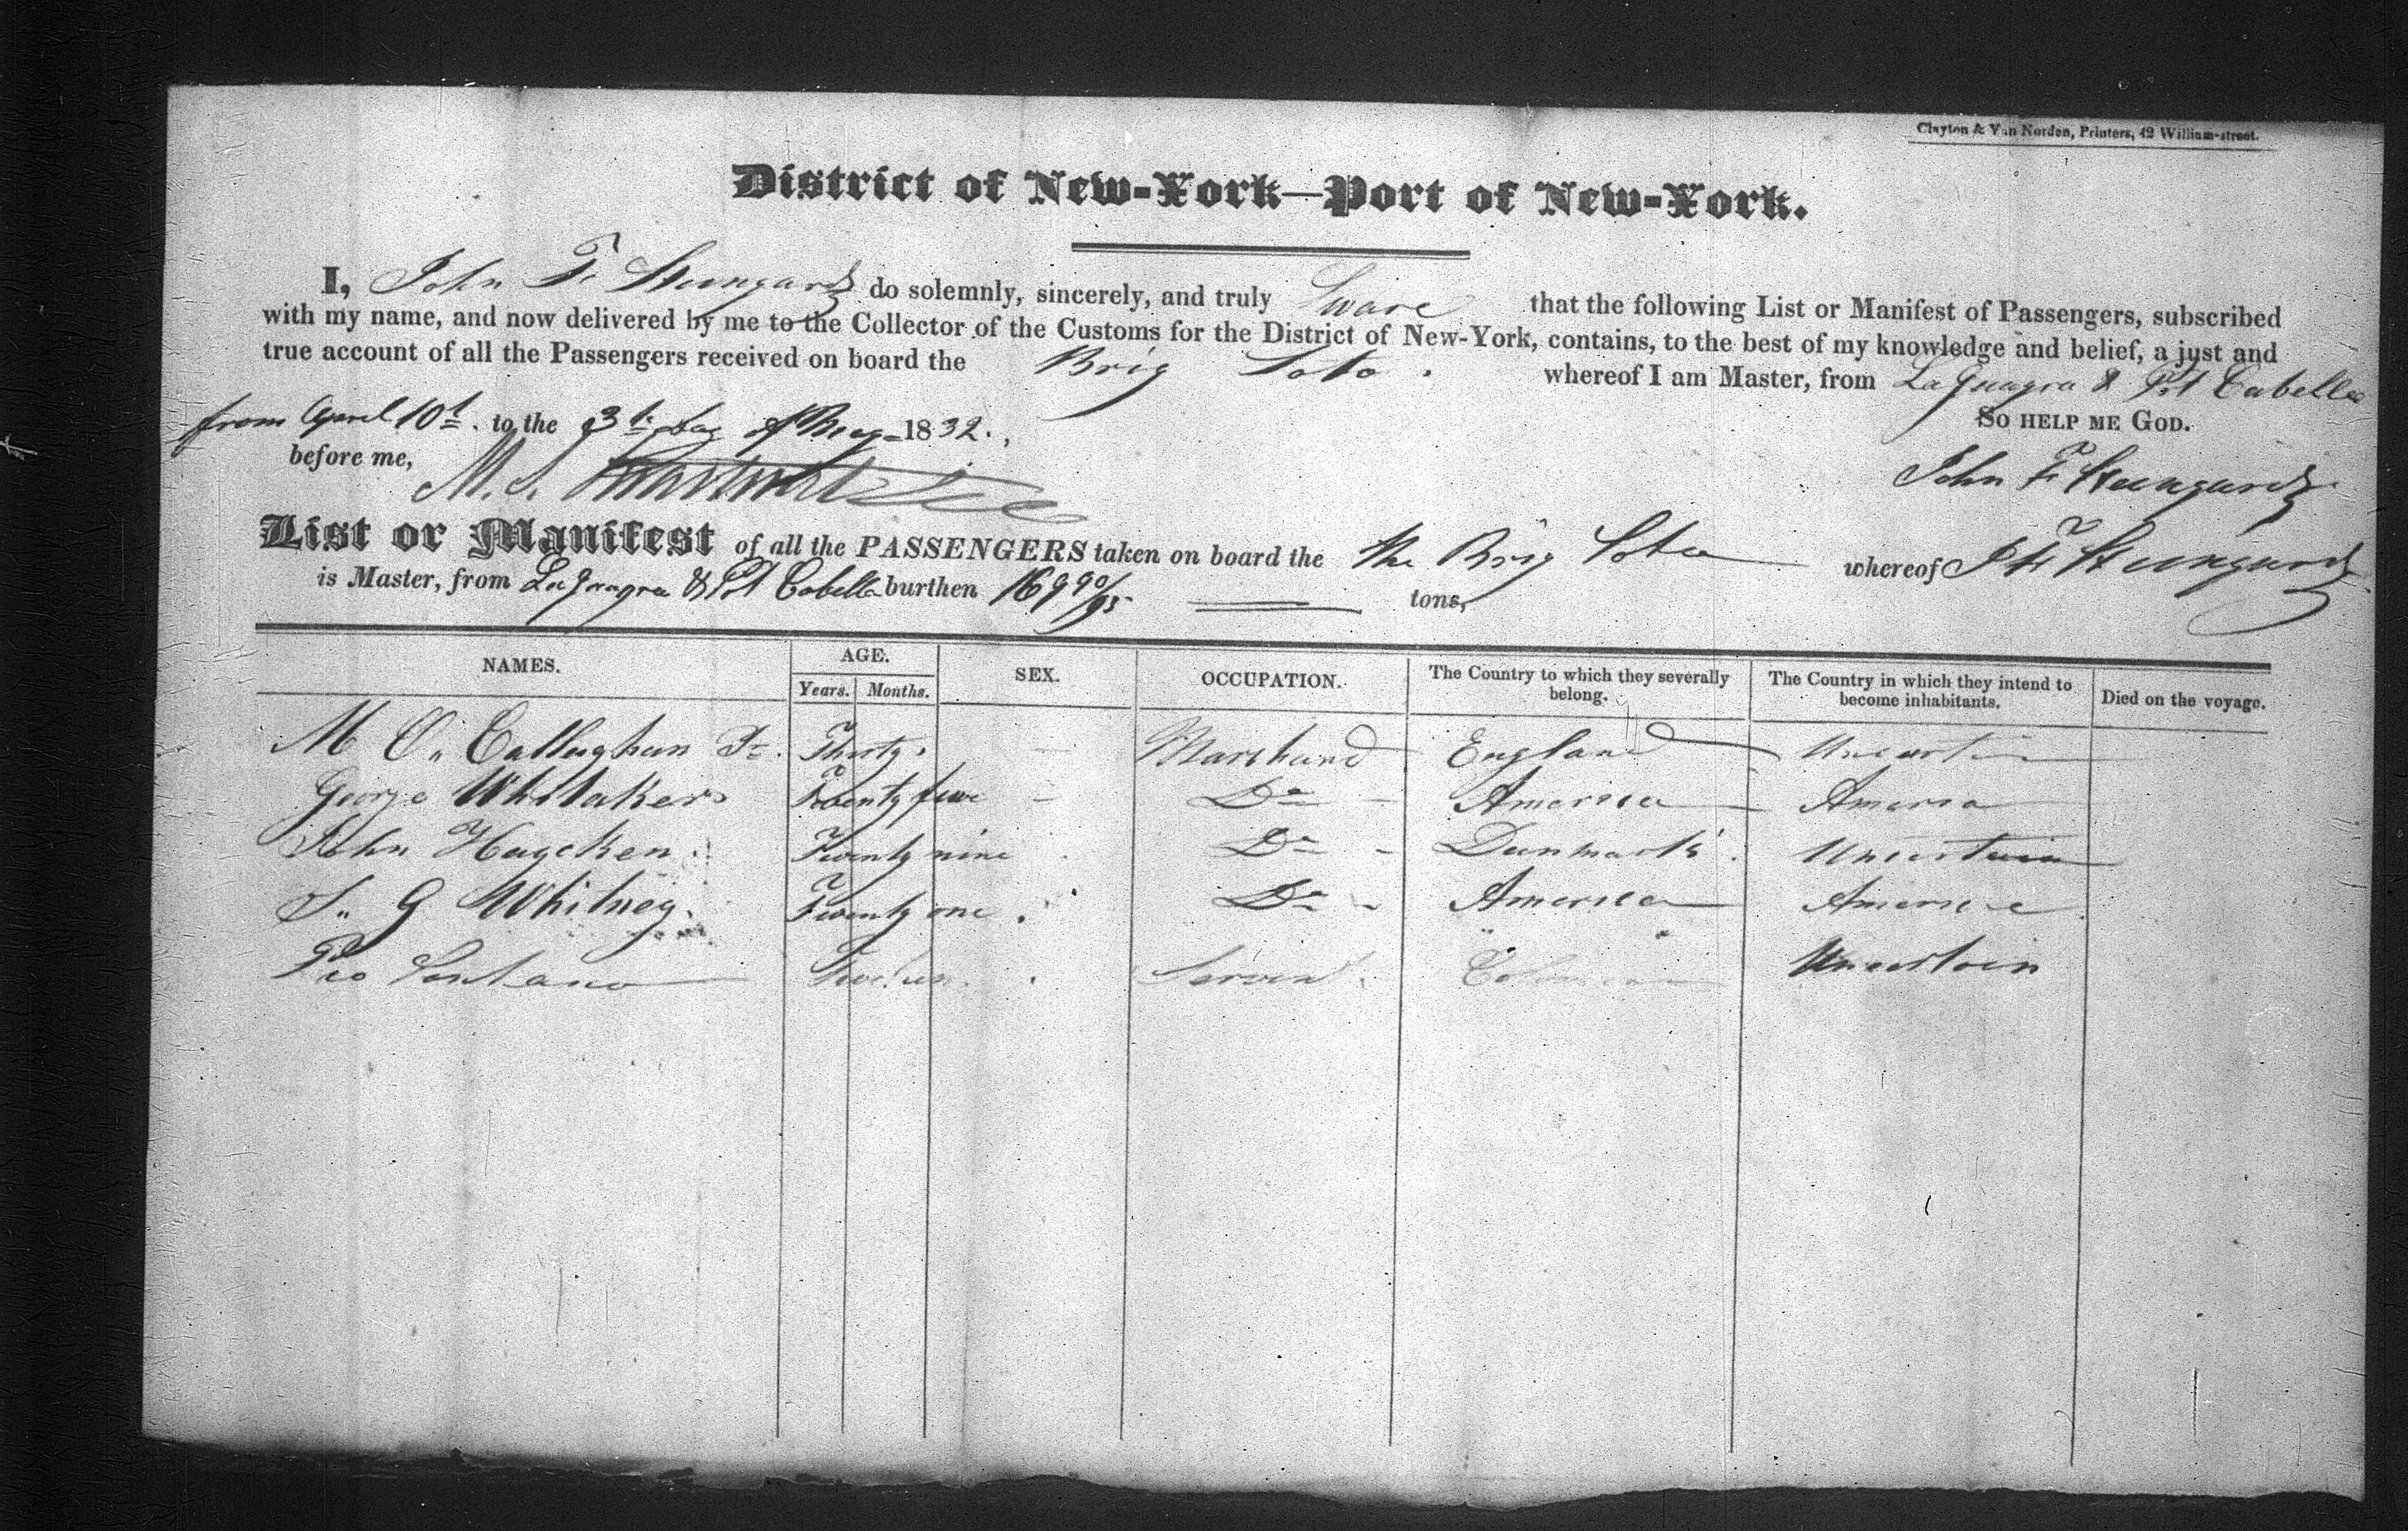 Clayton & Van Norden, Printers, 42 William-street.
District of New-York—Port of New-York.
I, John F. do solemnly, sincerely, and truly Sware that the following List or Manifest of Passengers, subscribed
with my name, and now delivered by me to the Collector of the Customs for the District of New-York, contains, to the best of my knowledge and belief, a just and
true account of all the Passengers received on board the Brig whereof I am Master, from La Guayra & Pt Cabello
from April 10th. to the day of May 1832.
So help me God.
before me, M. S.
John F
List or Manifest of all the PASSENGERS taken on board the the Brig whereof J F
is Master, from La Guayra & Pt Cabello burthen 169 90/95 tons,
NAMES. AGE. SEX. OCCUPATION. The Country to which they severally belong. The Country in which they intend to become inhabitants. Died on the voyage.
Years. Months.
M O. Callaghan Thirty. Marchand England Uncertin
George Whitaker Twenty five Do America America
John Twenty nine Do Danmark Uncertain
S. G Whitney. Twenty one. Do America America
Servent. Uncertain